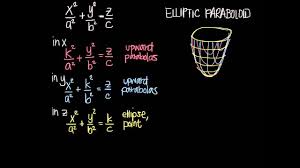 x²/a² + y²/b² = z/c
ELLIPTIC PARABOLOID
in x
k²/a² + y²/b² = z/c upward parabolas
in y
x²/a² + k²/b² = z/c upward parabolas
in z
x²/a² + y²/b² = k/c ellipse, point